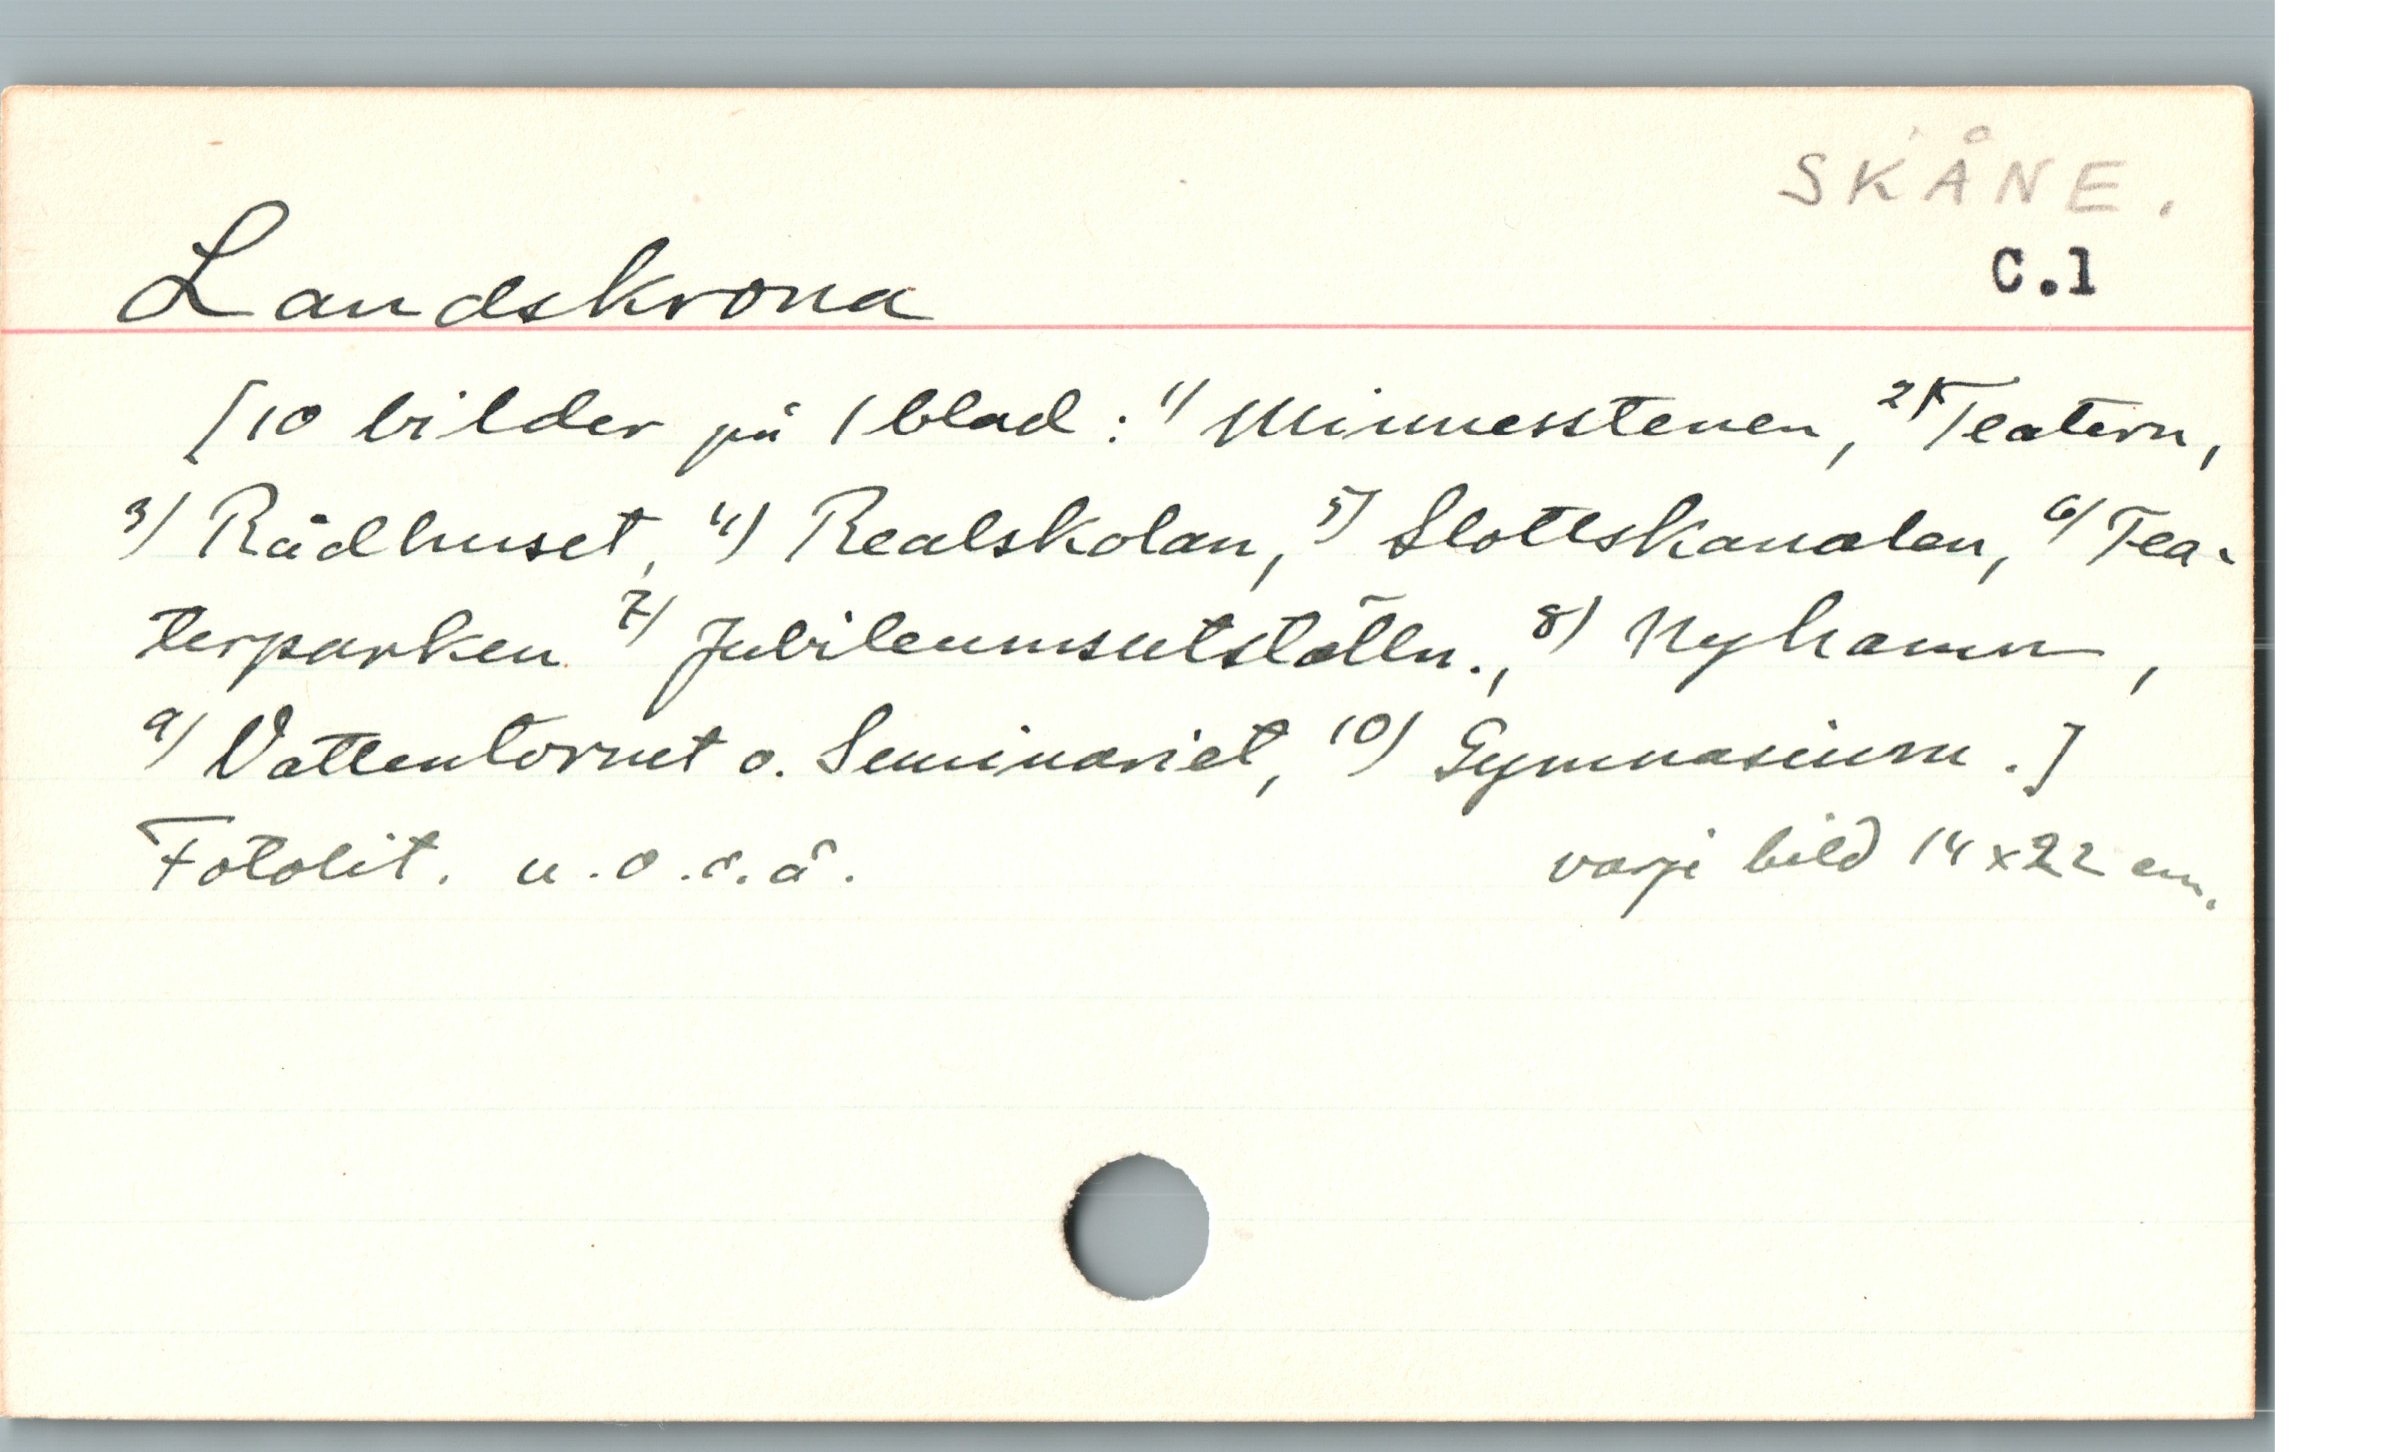 SKÅNE.
C.1
Landskrona
[10 bilder på 1 blad: 1) Minnesstenen, 2) Teatern,
3) Rådhuset, 4) Realskolan, 5) Slottskanalen, 6) Tea-
terparken 7) Jubileumsutställn., 8) Nyhamn,
9) Vattentornet o. Seminariet, 10) Gymnasium.]
Fotolit. u.o.o.å. varje bild 14x22 cm.